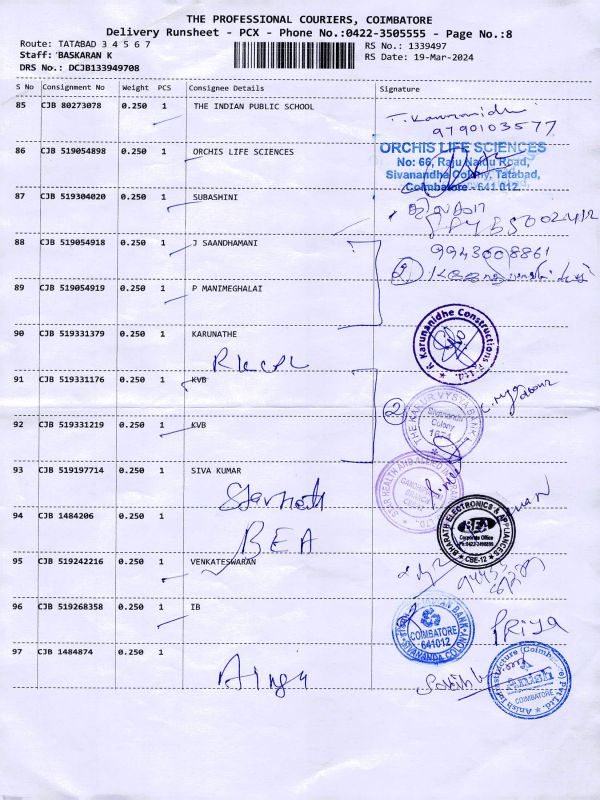 THE PROFESSIONAL COURIERS, COIMBATORE
Delivery Runsheet - PCX - Phone No.:0422-3505555 - Page No.:8
Route: TATABAD 3 4 5 6 7
RS No.: 1339497
Staff: BASKARAN K
RS Date: 19-Mar-2024
DRS No.: DCJB133949708
S No Consignment No Weight PCS Consignee Details Signature
85 CJB 80273078 0.250 1 THE INDIAN PUBLIC SCHOOL
9790103577
86 CJB 519054898 0.250 1 ORCHIS LIFE SCIENCES
ORCHIS LIFE SCIENCES
No: 66, Raju Naidu Road,
Sivanandha Colony, Tatabad,
Coimbatore - 641 012.
87 CJB 519304020 0.250 1 SUBASHINI
88 CJB 519054918 0.250 1 J SAANDHAMANI
9943008861
2
89 CJB 519054919 0.250 1 P MANIMEGHALAI
90 CJB 519331379 0.250 1 KARUNATHE
R Karunanidhe Constructions Pvt Ltd.
91 CJB 519331176 0.250 1 KVB
2
THE KARUR VYSYA BANK
Sivanandha
Colony
1674
92 CJB 519331219 0.250 1 KVB
93 CJB 519197714 0.250 1 SIVA KUMAR
STAR HEALTH AND ALLIED
BRANCH
94 CJB 1484206 0.250 1
BEA
BHARATH ELECTRONICS & APPLIANCES
BEA
Corporate Office
CBE-12
95 CJB 519242216 0.250 1 VENKATESWARAN
96 CJB 519268358 0.250 1 IB
INDIAN BANK
COIMBATORE
641012
SIVANANDA COLONY
PRIYA
97 CJB 1484874 0.250 1
COIMBATORE